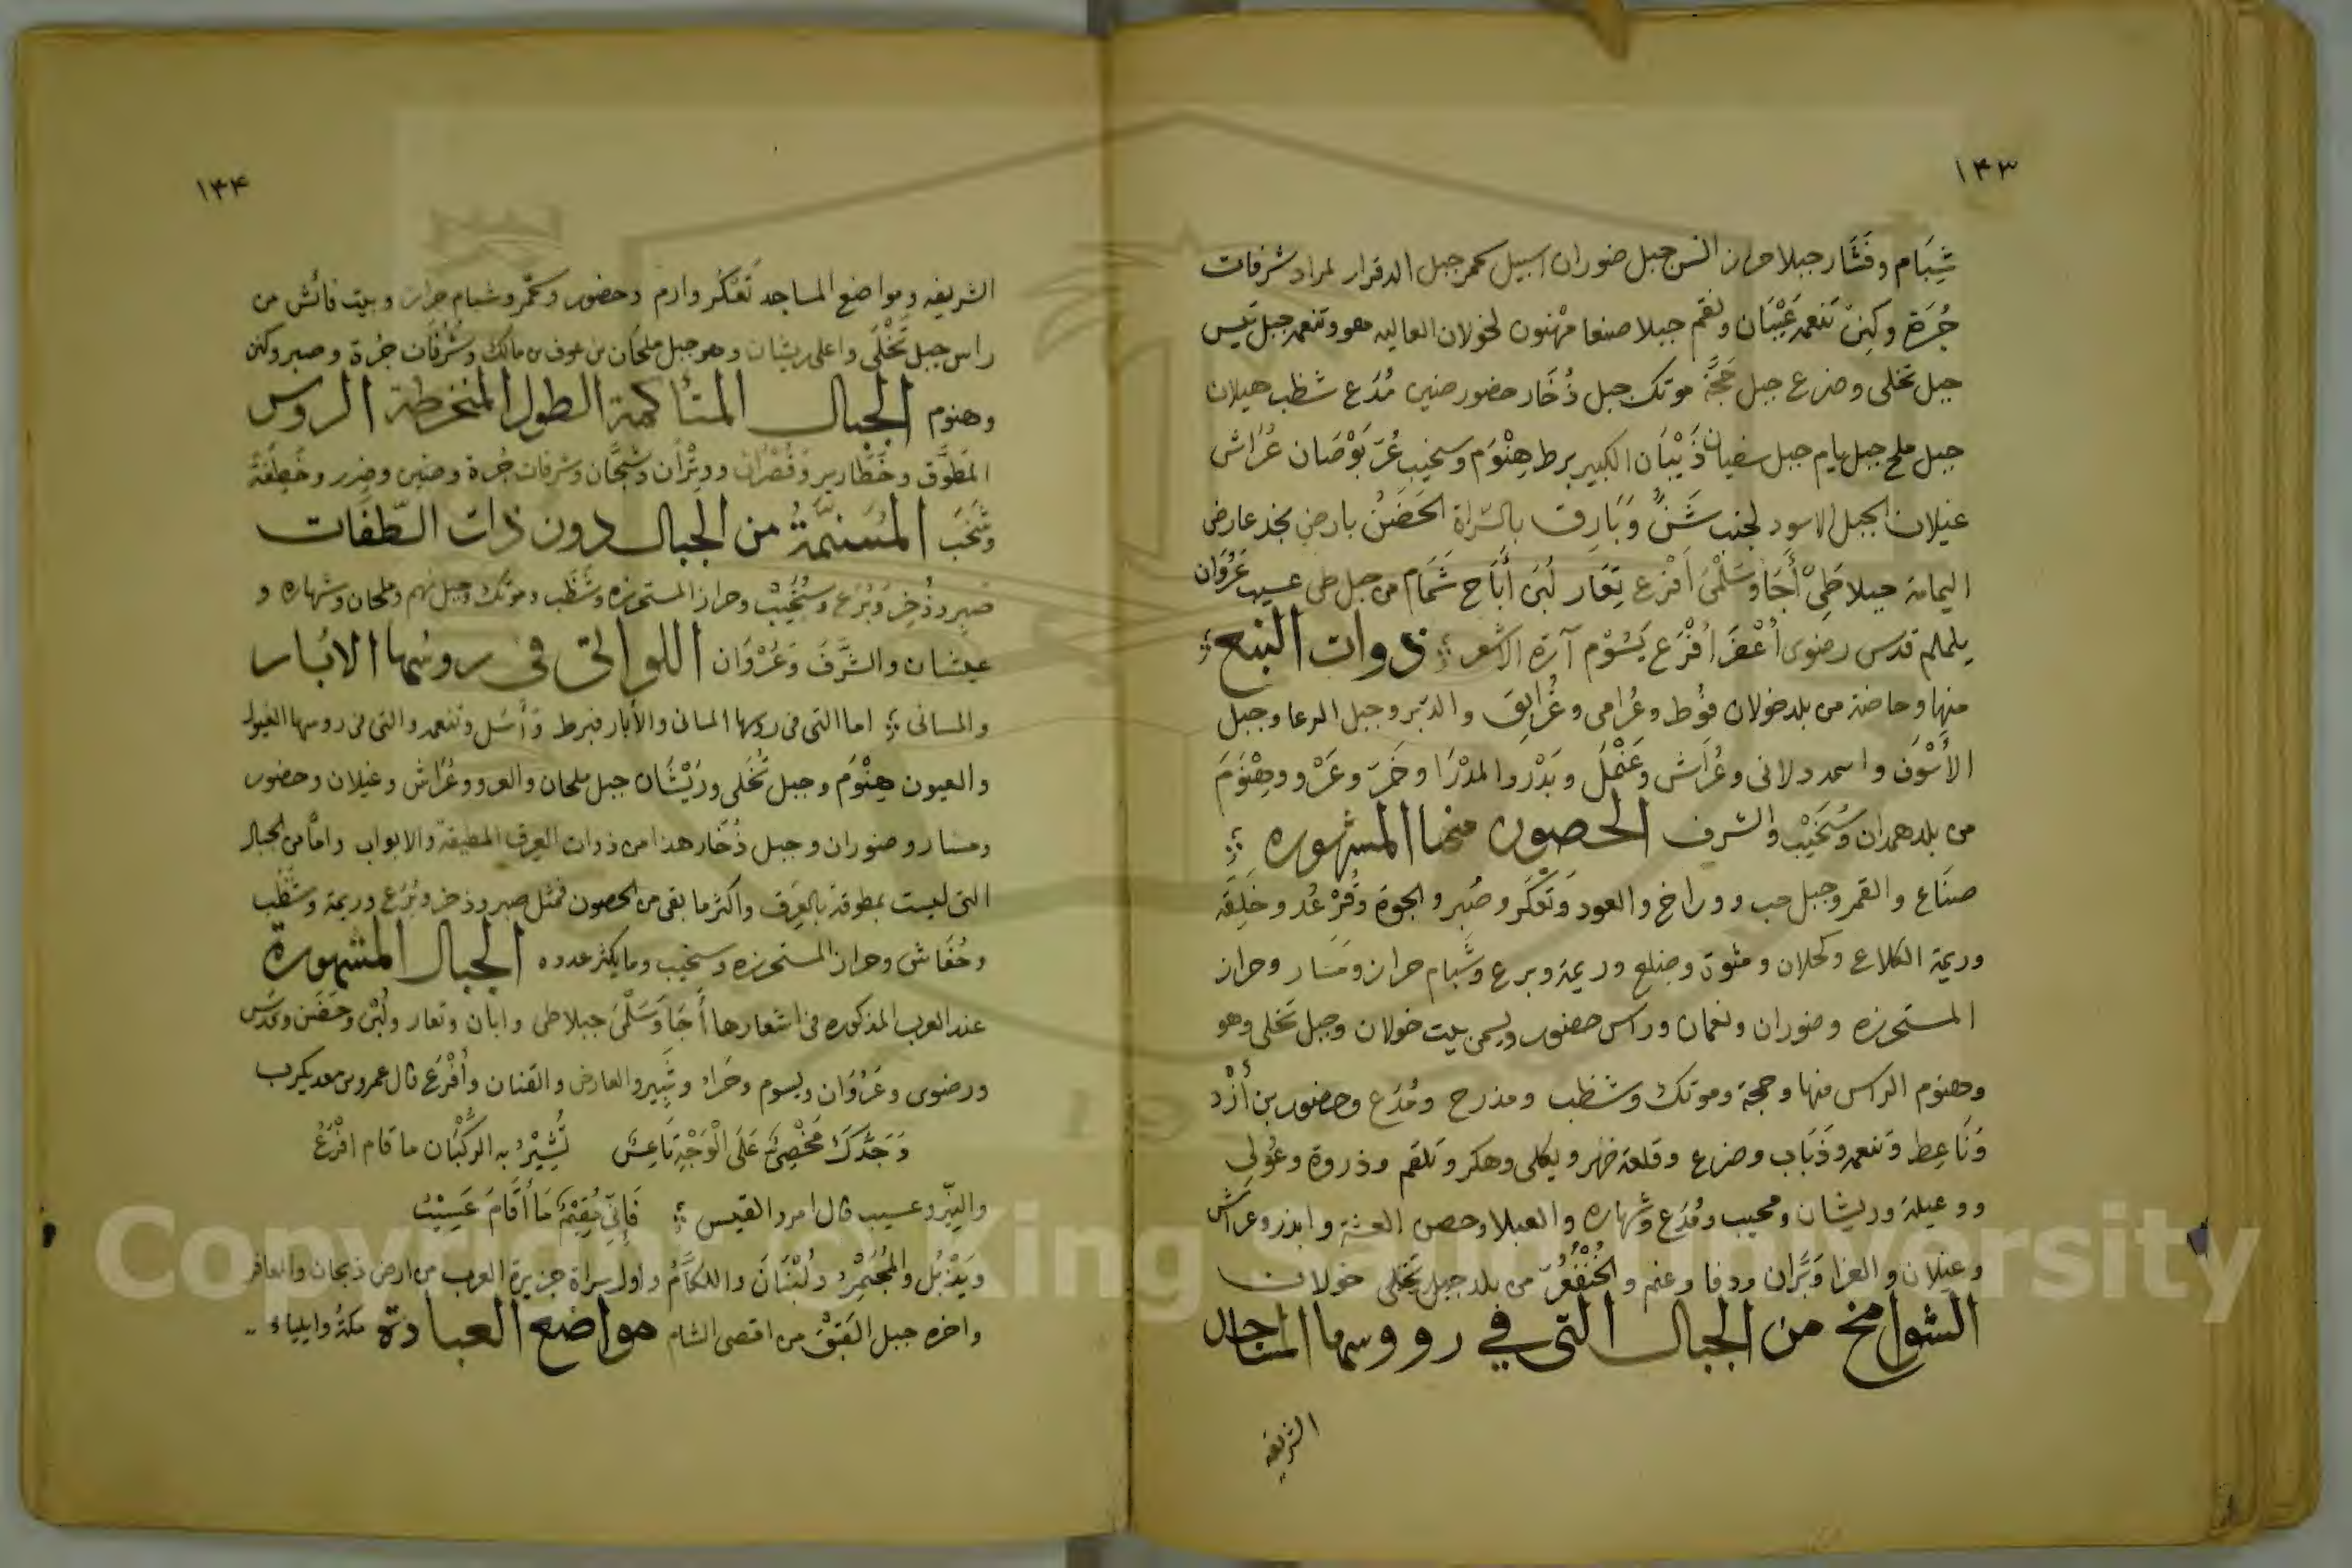 ١٤٣
شِبَام وقَشَار جبلا حراز السن جبل ضوران اسبيل كحمر جبل الدقرار لمراد شرفات
جُرَة وكنن تنعمه عَيْبَان ونقم جبلا صنعا مهنون لخولان العاليه هو وتنعمه جبل تيس
جبل تخلى وضرع جبل حَجَّة موتك جبل ذُخَار حضور ضين مُدَع شظب هيلان
جبل ملح جبل يام جبل سفيان ذَيْبَان الكبير برط هِنْوَم وسخيب عُرّ بَوْصَان عُرَاش
غيلان الجبل الاسود لجنب شَنّ وَبَارِق بالسّراة الحَضَنُ بارض نجد عارض
اليمامة جبلا طَىّ أَجَأ وسَلْمَى اَفْرَع تِعَار لُبْنَ أَبَاح شَمَام من جبل طى عسيب غَزْوَان
يلملم قدس رضوى أَعْفَر أَفْرَع يَسُوْم آرَة الاشعر ؛ ذوات النبع ؛
منها وحاضنة من بلد خولان فوُط وعُرامى وعُرَابِق والدّبر وجبل الرعا وجبل
الأسْوَق واسحد ولانى وعُرَاش وعَنْمَل وبَدْر والمدْرَا وخَمَرَ وعَرْو وهِنْوَمَ
من بلد همدان وسُخَيْب والشرف الحصون منها المشهوره ؛
صنَاع والقمر وجبل حب ووراخ والعود وتَعْكَر وصَبِر والجوة وقُرْعُد وخَلِقَه
وريمة الكلاع وكحلان ومثوة وضلع وريمة وبرع وشَبام حراز ومَسَار وحراز
المستحرزه وضوران ونعمان وراس حضور ويسمى بيت خولان وجبل تخلى وهو
وهنوم الراس منها وحجة وموتك وشظب ومذرح ومُدَع وحضور بن أَزْد
وَنَاعِط وتنعمه وذَبَاب وضرع وقلعة ضهر ويكلى وهكر وتلقم وذروة وعُولى
ووعيلة وريشان ومحيب ومُدَع وشهاره والعبلا وحصن العشة وابذر وعراش
وغيلان والعزا وبَرَّان ودفا وعنم والخُنْفُعُرّ من بلد جبل تخلى خولان
الشوامخ من الجبال التى في رووسها المساجد
الشريفه
١٤٤
الشريفه ومواضع المساجد تَعْكُر وادم وحضور وكمّر وشبام حراز وبيت فائش من
راس جبل تَخْلَى واعلى ريشان وهو جبل ملحان بن عوف بن مالك وشُرُفَات جرُة وصبر وكنن
وهنوم الجبال المتأكمة الطول المنخرطة الروس
المَطَوَّق وخَطَارير وقُضْرَان وويْرَان وشَجَّان وشرفات جُرة وضين وضرر وخَطِفَة
وشُخَب المُسَنَّمَةُ من الجبال دون ذات الطّفَات
صبر وذُخِر وَبُرَع وسُخَيْب وحراز المستحرزه وشَظَب وموتك وجبل نهم وملحان وشهاره و
عيشان والشَّرَفَ وغَزْوَان اللواتى فى روسها الابار
والمسانى ؛ اما التى فى روسها المسانى والأبار فبرط وَأَسَل وتنعمه والتى فى روسها الغيول
والعيون هِنْوَم وجبل تُخَلى ورَيْشَان جبل ملحان والعرو وعُرَاش وغيلان وحضور
ومسار وضوران وجبل ذُخَار هذا من ذوات العرق المطيفة والابواب واما من الجبال
التى ليست بمطوقة بالعِرَق واكثر ما بقى من الحصون فمثل صبر وذخر وبُرَع وريمة وشَظَب
وحُفَاش وحراز المستحرزه وسخيب وما يكثر عدده الجبال المشهورة
عند العرب المذكوره فى اشعارها أَجَأ وَسَلْمَى جبلا طى وابان وتعار ولُبْن وحَضَن وقُدْس
ورضوى وغَزْوَان ويسوم وحَراء وثَبِير والعارض والقنان وأَفْرَع قال عمرو بن معديكرب
وَجَدَّكَ مَخْصِىٌّ عَلَى الْوَجْهِ تَاعِسٌ تُشِيْرُ بِهِ الرَكْبَان ما قام افْرَعُ
والنِيّر وعسيب قال امرؤ القيس ؛ فَإِنّى مُقِيْمٌ مَا أَقَامَ عَسِيْبُ
ويَذْبُل والمُجَيْمِرُ ولُبْنَانَ واللكَّامُ واول سراة جزيرة العرب من ارض ذبحان والمعافر
واخره جبل العَبَقْ من اقصى الشام مواضع العبادة مكة وايلياء
Copyright © King Saud University